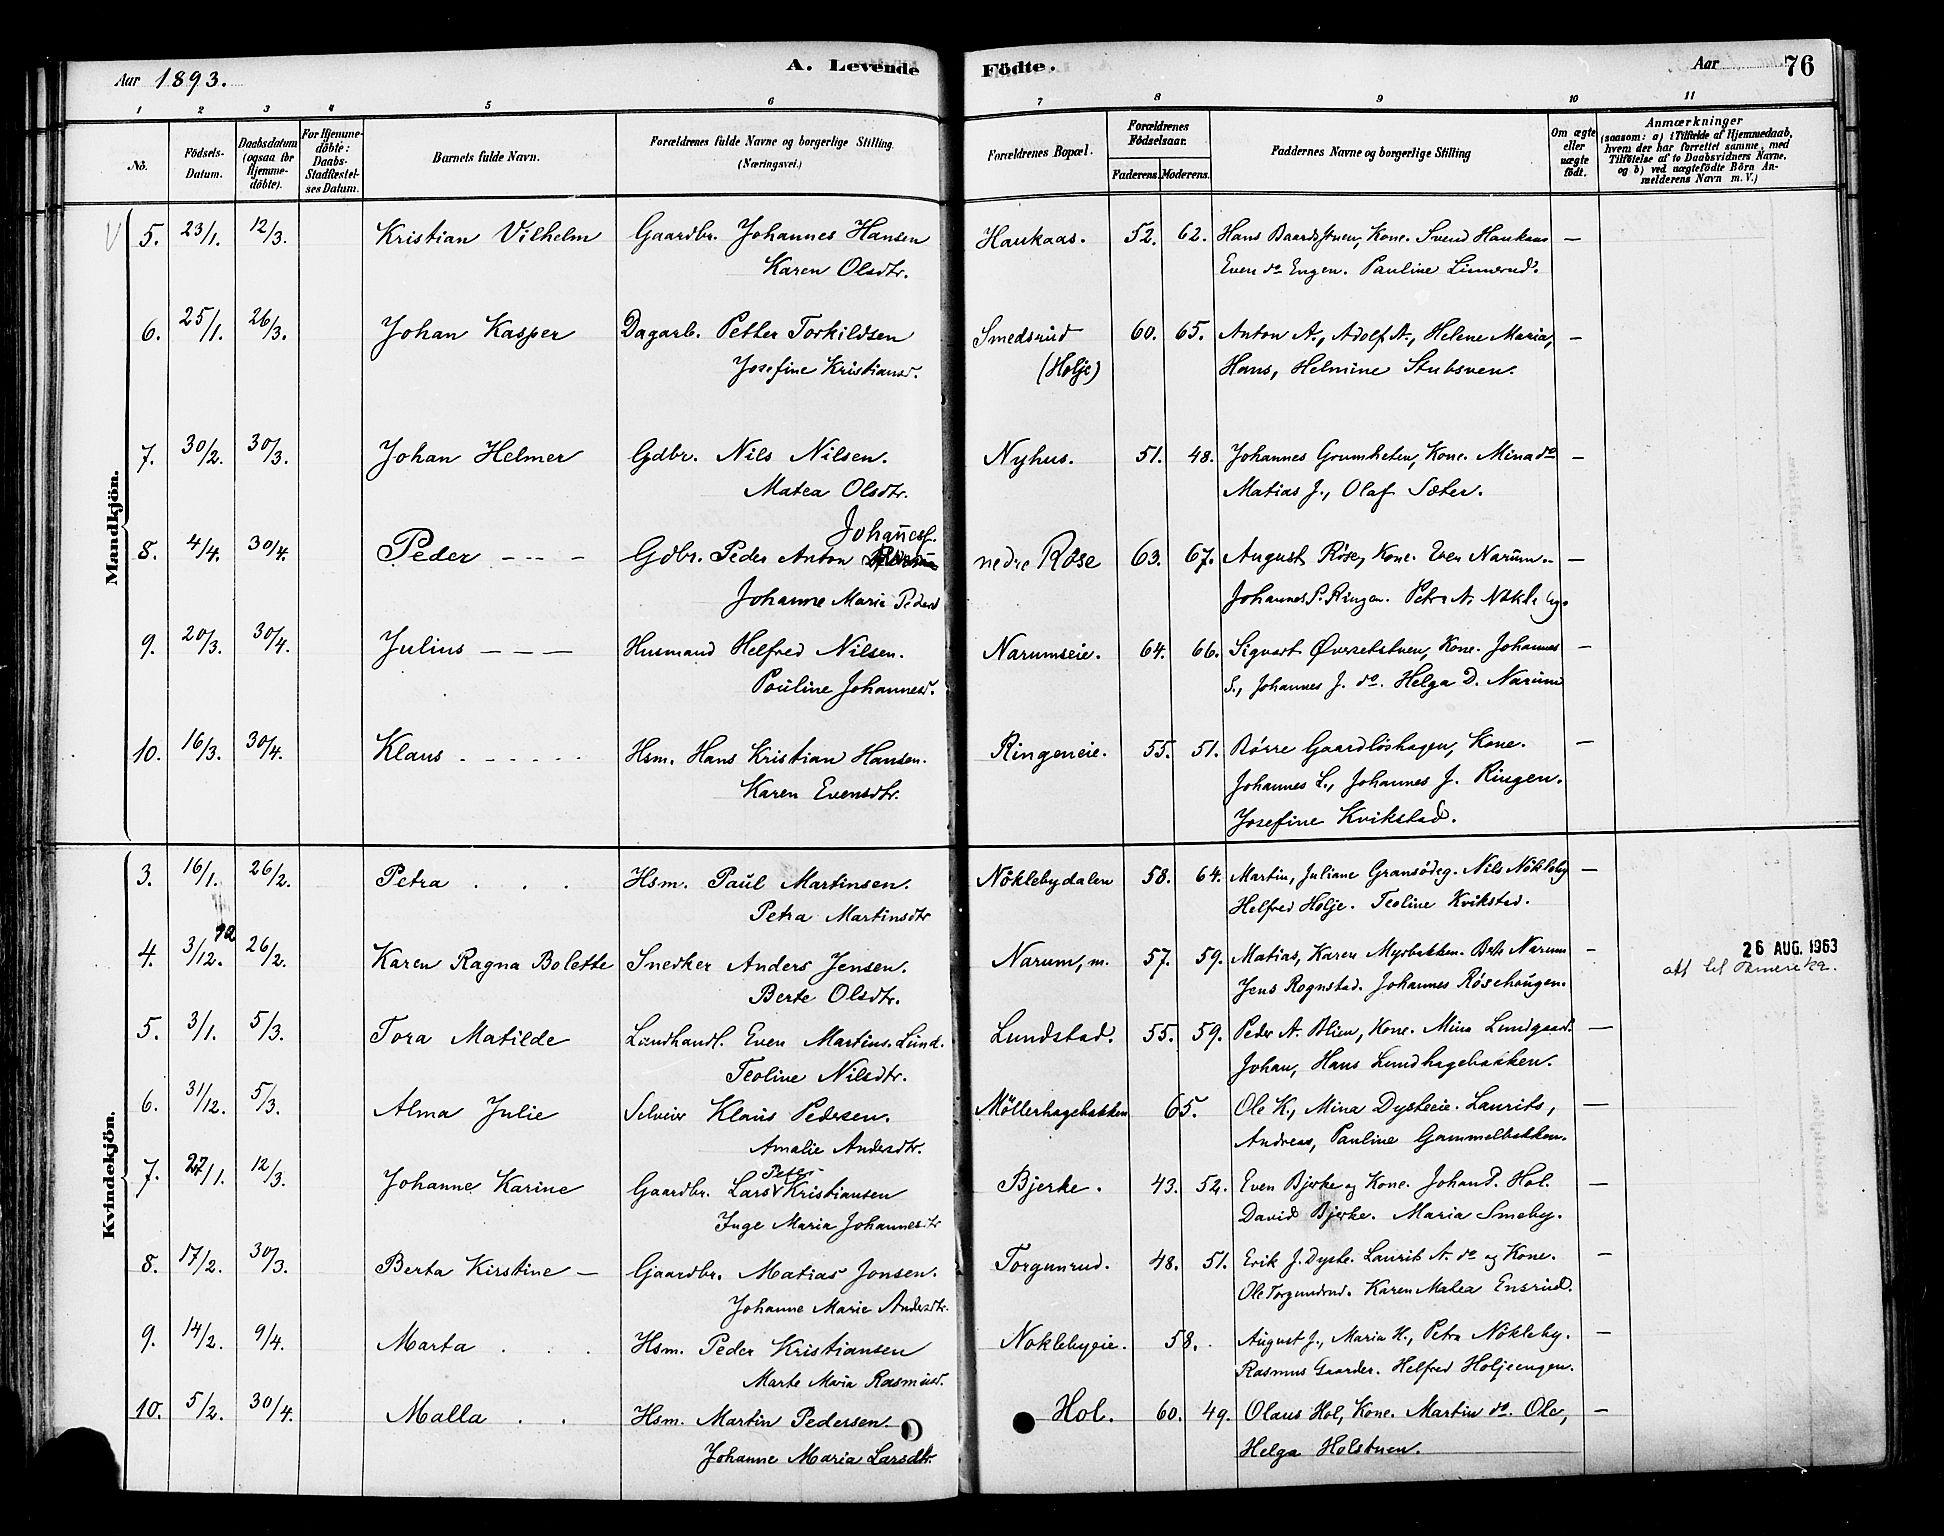 Aar 1893. A. Levende Födte. Aar 76
1 2 3 4 5 6 7 8 9 10 11
No. Födsels-Datum. Daabsdatum (ogsaa for Hjemmedöbte). For Hjemmedöbte: Daabs-Stadfæstelses Datum. Barnets fulde Navn. Forældrenes fulde Navne og borgerlige Stilling (Næringsvei.) Forældrenes Bopæl. Forældrenes Födselsaar. Faderens. Moderens. Faddernes Navne og borgerlige Stilling Om ægte eller uægte födt. Anmærkninger (saasom: a) i Tilfælde af Hjemmedaab, hvem der har forrettet samme, med Tilföielse af to Daabsvidners Navne, og b) ved uægtefödte Börn Anmelderens Navn m. V.)
Mandkjön.
5. 23/1. 12/3. Kristian Vilhelm Gaardbr. Johannes Hansen Haukaas. 52. 62. Hans Baardsstuen, Kone. Svend Haukaas —
Karen Olsdtr. Even do Engen. Pauline Linnerud.
6. 25/1. 26/3. Johan Kasper Dagarb. Petter Torkildsen Smedsrud 60. 65. Anton A., Adolf A., Helene Maria, —
Josefine Kristiansd. (Holje) Hans, Helmine Stubsven.
7. 30/2. 30/3. Johan Helmer Gdbr. Nils Nilsen. Nyhus. 51. 48. Johannes Grumheten, Kone. Mina do —
Matea Olsdtr. Matias J., Olaf Sæter.
Johanness.
8. 4/4. 30/4. Peder - - - - Gdbr. Peder Anton nedre Röse 63. 67. August Röse, Kone. Even Narum. —
Johanne Marie Pedersd Johannes P. Ringen. Petra N. Nökleby.
9. 20/3. 30/4. Julius - - - Husmand Helfred Nilsen. Narumseie. 64. 66. Sigvart Øversetstuen, Kone. Johannes —
Pauline Johannesd. S., Johannes J. do. Helga D. Narum
10. 16/3. 30/4. Klaus - - - - - - Hsm. Hans Kristian Hansen. Ringeneie. 55. 51. Börre Gaardlöshagen, Kone. —
Karen Evensdtr. Johannes L., Johannes J. Ringen.
Josefine Kvikstad.
Kvindekjön.
3. 16/1. 26/2. Petra . . . Hsm. Paul Martinsen. Nöklebydalen 58. 64. Martin, Juliane Gransödeg. Nils Nökleby —
Petra Martinsdtr Helfred Holje. Teoline Kvikstad.
4. 3/12. 92 26/2. Karen Ragna Bolette Snedker Anders Jensen. Narum, m. 57. 59. Matias, Karen Myrbakken. Narum — 26 AUG. 1963
Berte Olsdtr. Jens Rognstad. Johannes Röschougen. att til Amerika.
5. 3/1. 5/3. Tora Matilde Landhandl. Even Martins. Lund. Lundstad. 55. 59. Peder A. Blien, Kone. Mina Lundgaard. —
Teoline Nilsdtr. Johan, Hans Lundhagebakken.
6. 31/12. 5/3. Alma Julie Selveier Klaus Pedersen. Möllerhagebakken 65. Ole K., Mina Dysteeie. Laurits, —
Amalie Andersdtr. Andreas, Pauline Gammelbakken.
7. 27/1. 12/3. Johanne Karine Gaardbr. Lars Peter Kristiansen Bjerke. 43. 52. Even Bjerke og Kone. Johan P. Hol. —
Inge Maria Johannesdtr David Bjerke. Maria Smeby.
8. 17/2. 30/3. Berta Kirstine — Gaardbr. Matias Jonsen. Torgunrud. 48. 51. Erik J. Dyste. Laurits A. do og Kone. —
Johanne Marie Andersdtr. Ole Torgunrud. Karen Matea Ensrud.
9. 14/2. 9/4. Marta . . . Hsm. Peder Kristiansen Noklebyeie. 58. August J., Maria H., Petra Nökleby. —
Marte Maria Rasmusd. Rasmus Gaarder. Helfred Holjeengen.
10. 5/2. 30/4. Malla . . Hsm. Martin Pedersen. Hol. 60. 49. Olaus Hol, Kone. Martin do. Ole, —
Johanne Maria Larsdtr. Helga Holstuen.